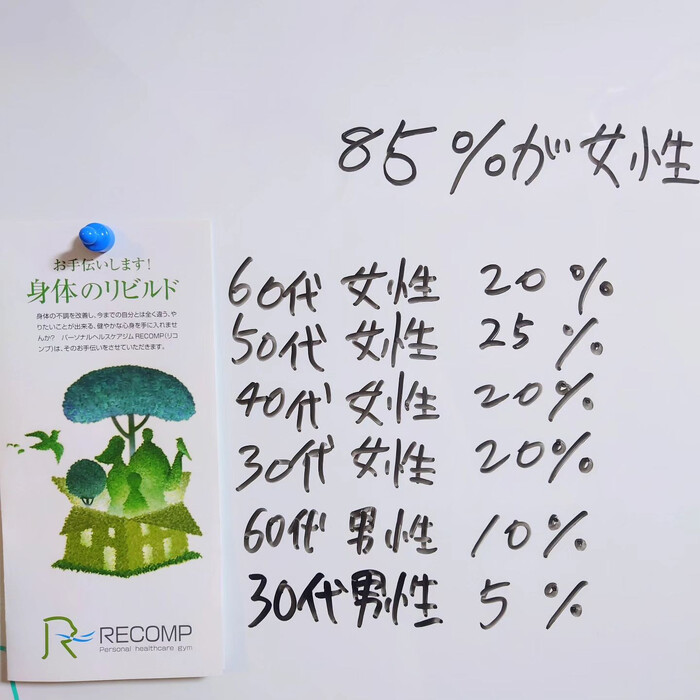 85%が女性
お手伝いします!
身体のリビルド
身体の不調を改善し、今までの自分とは全く違う、や
りたいことが出来る、健やかな心身を手に入れませ
んか? パーソナルヘルスケアジムRECOMP(リコ
ンプ)は、そのお手伝いをさせていただきます。
RECOMP
Personal healthcare gym
60代 女性 20%
50代 女性 25%
40代 女性 20%
30代 女性 20%
60代 男性 10%
30代男性 5%